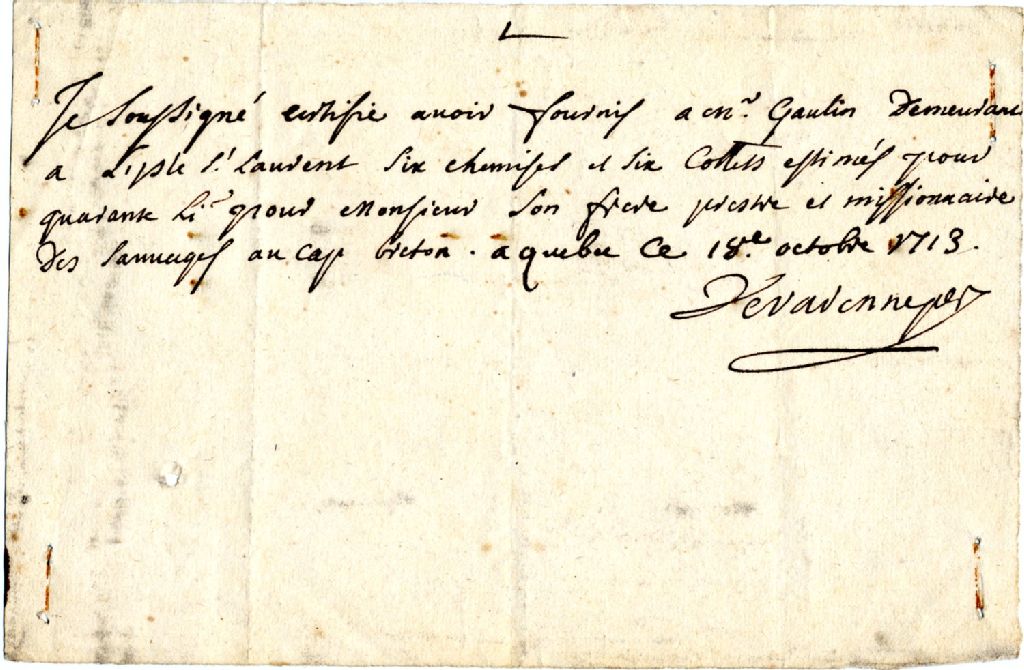 L
Je soussigné certifie avoir fournis a mr. Gaulin Demeurant
a L'isle st. Laurent six chemises et six Collets estimés pour
quarante li.s pour Monsieur son frere prestre et missionnaire
Des sauvages au cap breton. a quebec Ce 18e. octobre 1713.